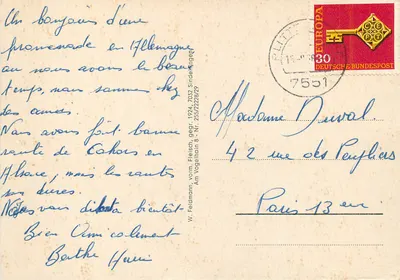 Un bonjour d'une
promenade en Allemagne
où nous avons le beau
temps, nous sommes chez
des amis.
Nous avons fait bonne
route de Cahors en
Alsace, mais les routes
sur
Nous vous bientôt
Bien Amicalement
Berthe
W. Feldmann, vorm. Fleisch, gegr. 1924, 7032 Sindelfingen
Am Vogelhain 8 - Nr. 25532226/29
7551
EUROPA
30
DEUTSCHE BUNDESPOST
Madame Duval
42 rue des Peupliers
Paris 13 em